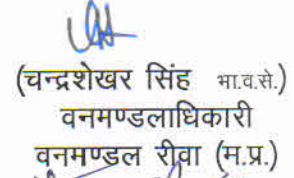 (चन्द्रशेखर सिंह भा.व.से.)
वनमण्डलाधिकारी
वनमण्डल रीवा (म.प्र.)